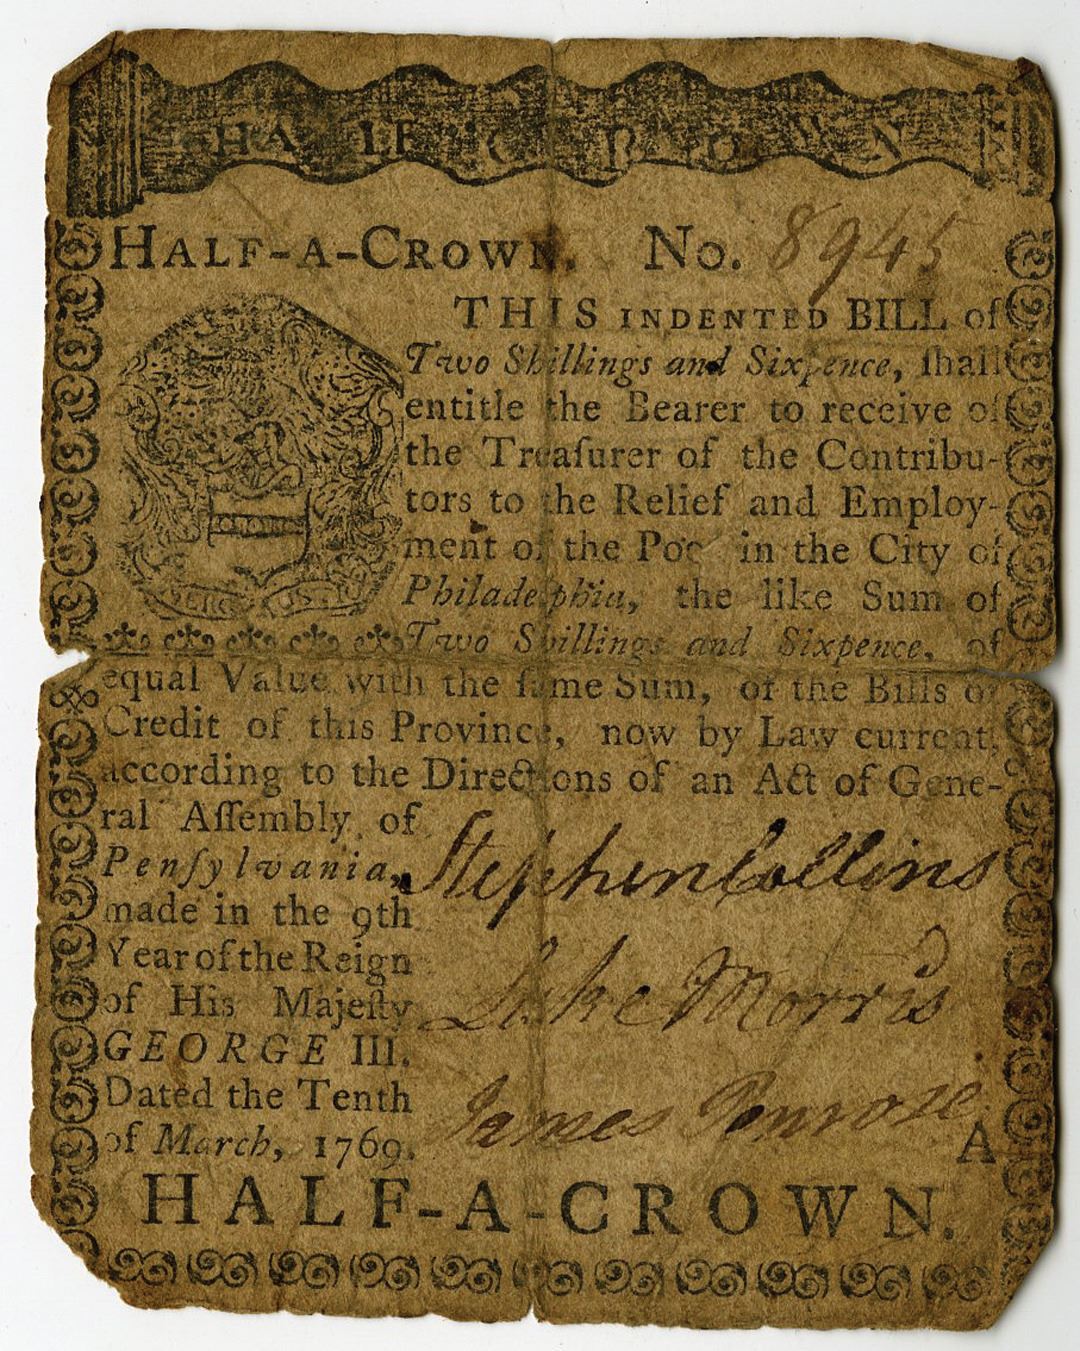 HALF CROWN
HALF-A-CROWN. No. 8945
THIS INDENTED BILL of
Two Shillings and Sixpence, ſhall
entitle the Bearer to receive of
the Treaſurer of the Contribu-
tors to the Relief and Employ-
ment of the Poor in the City of
Philadelphia, the like Sum of
Two Shillings and Sixpence, of
equal Value with the ſame Sum, of the Bills of
Credit of this Province, now by Law current,
according to the Directions of an Act of Gene-
ral Aſſembly of
Penſylvania,
made in the 9th
Year of the Reign
of His Majeſty
GEORGE III.
Dated the Tenth
of March, 1769.
Stephen Collins
Luke Morris
James Penrose
A
HALF-A-CROWN.